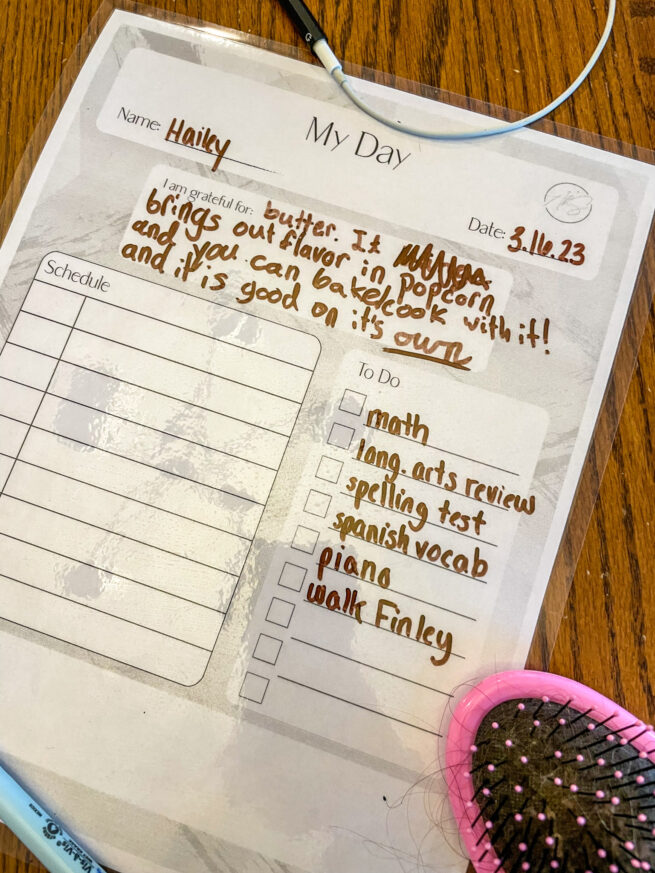 My Day
Name: Hailey
Date: 3.16.23
I am grateful for: butter. It
brings out flavor in popcorn
and you can bake/cook with it!
and it is good on it's own
Schedule
To Do
math
lang. arts review
spelling test
spanish vocab
piano
walk Finley
Vis-à-Vis